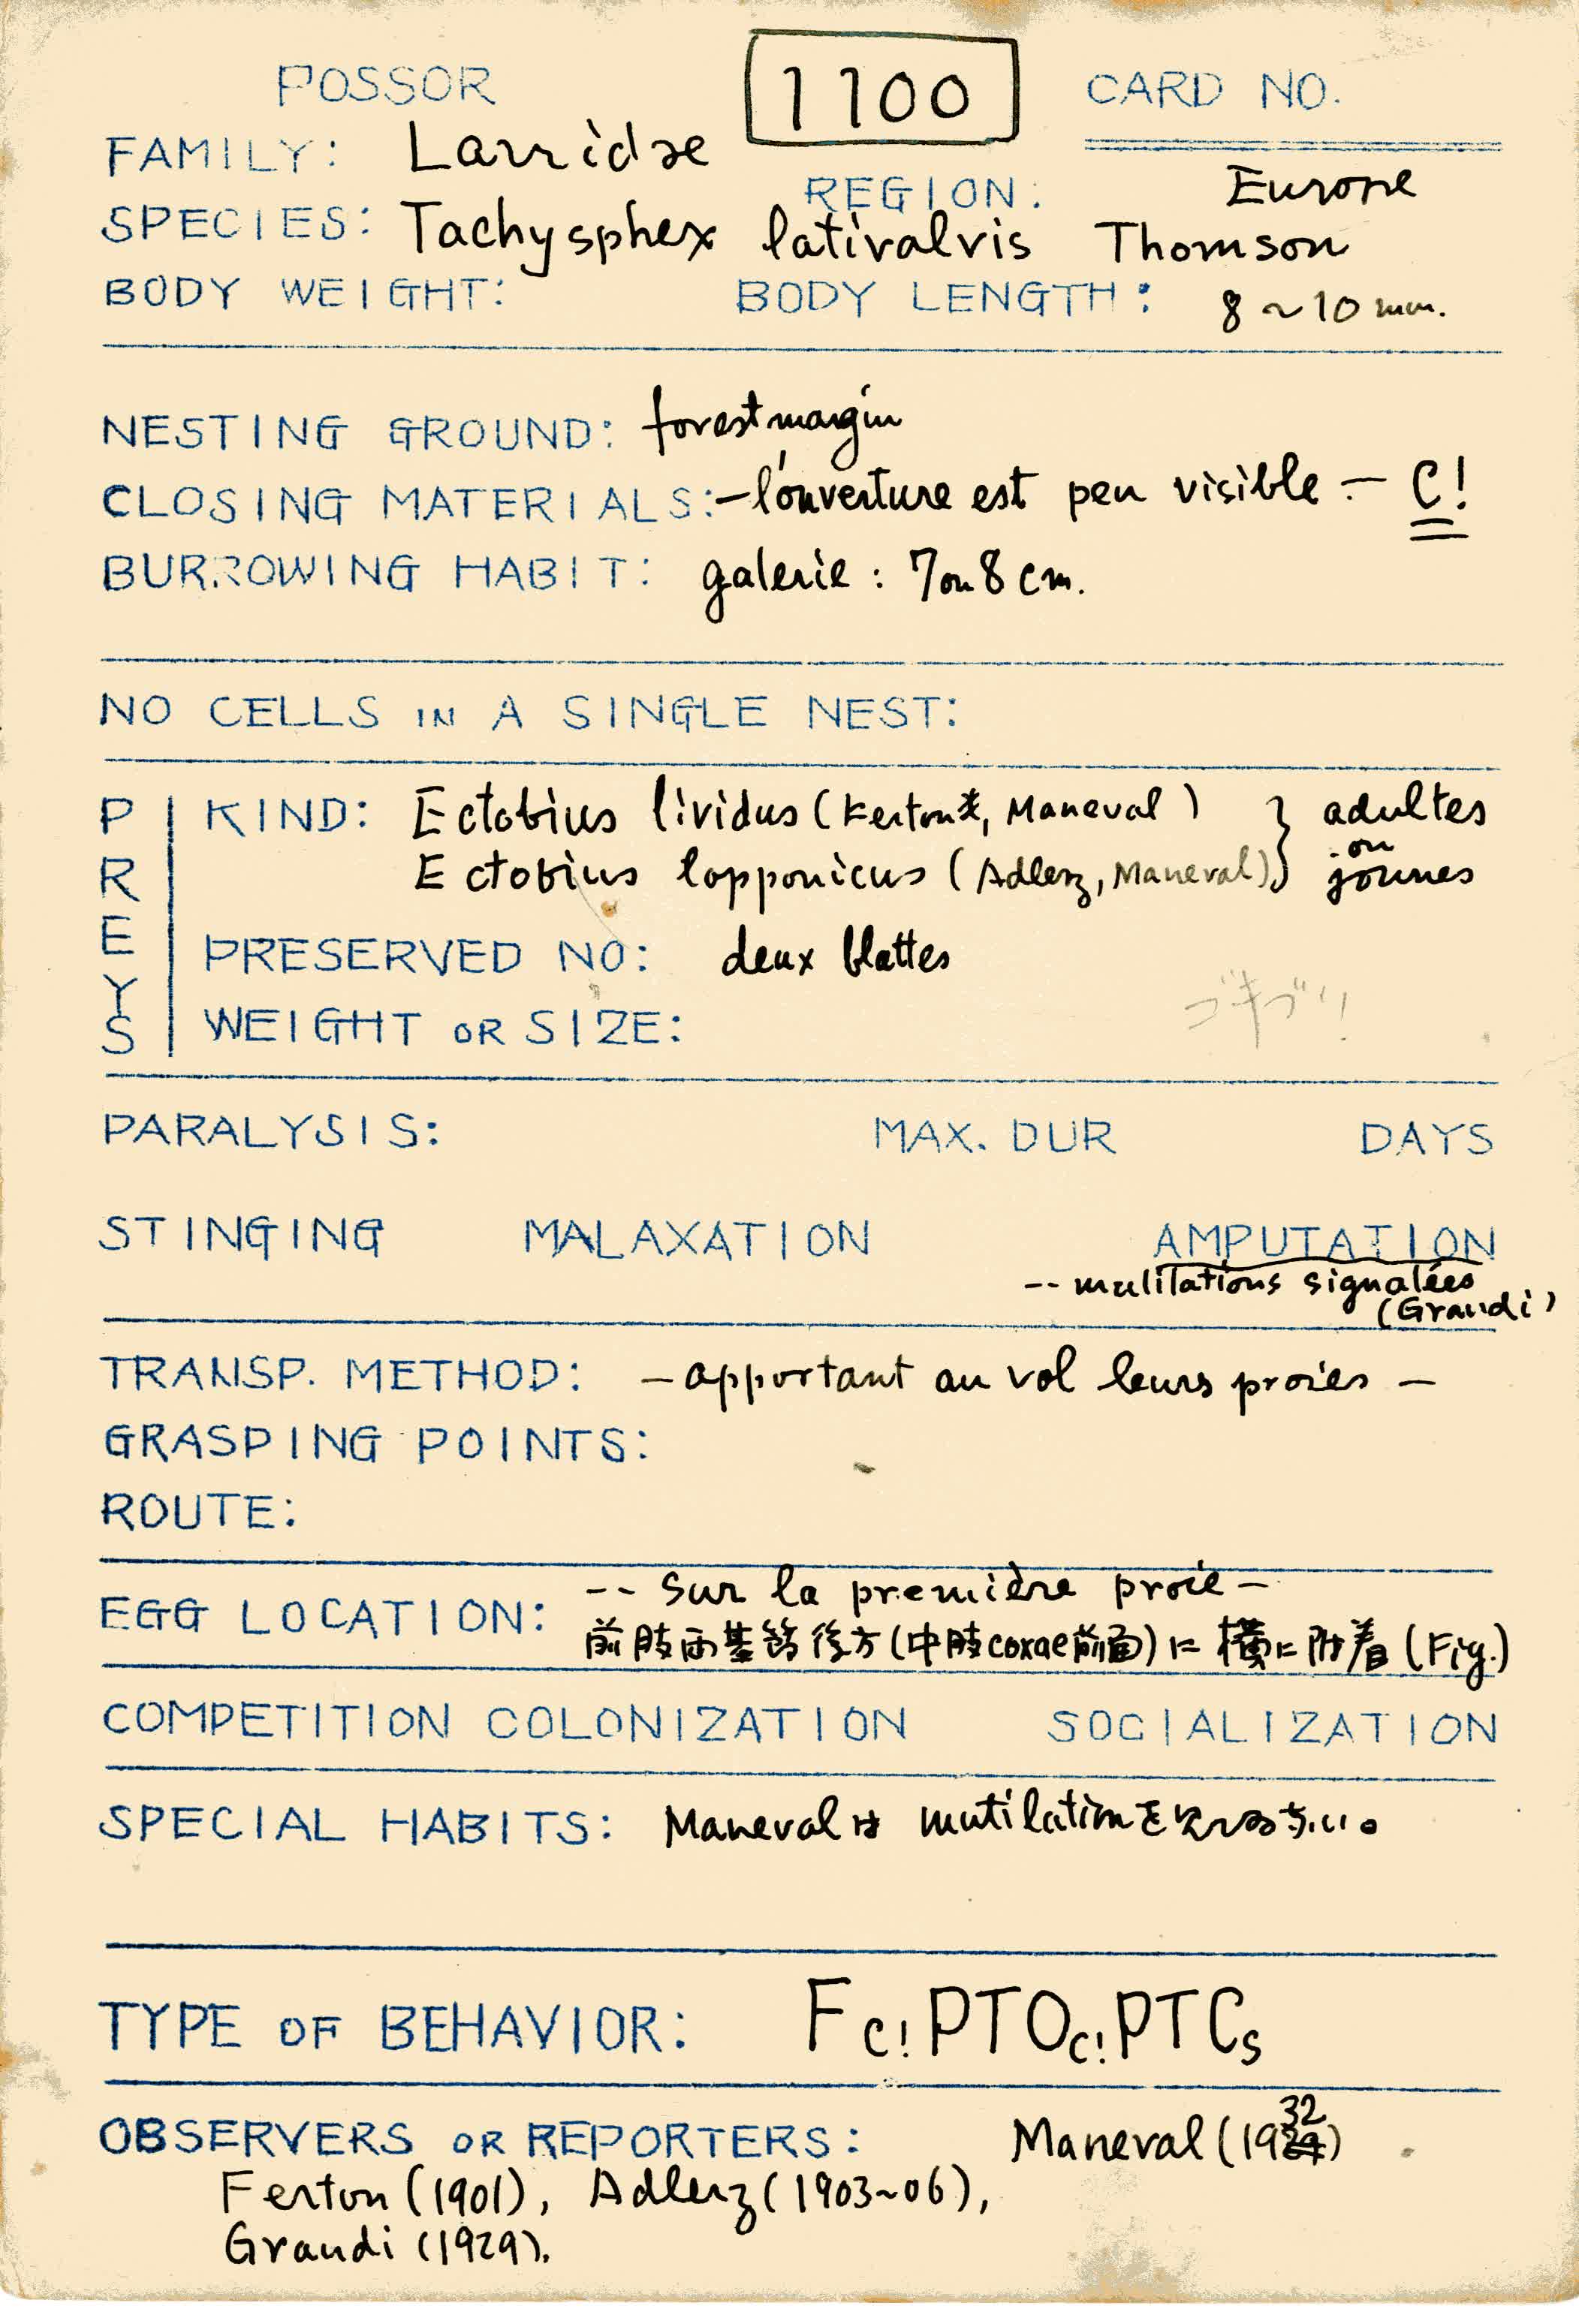 FOSSOR 1100 CARD NO.
FAMILY: Larridae
REGION: Europe
SPECIES: Tachysphex lativalvis Thomson
BODY WEIGHT: BODY LENGTH: 8~10 mm.
NESTING GROUND: forest margin
CLOSING MATERIALS: —l'ouverture est peu visible — C!
BURROWING HABIT: galerie : 7 ou 8 cm.
NO CELLS IN A SINGLE NEST:
PREYS
KIND: Ectobius lividus (Ferton, Maneval) } adultes
ou
Ectobius lapponicus (Adlerz, Maneval) } jeunes
PRESERVED NO: deux blattes
ゴキブリ
WEIGHT OR SIZE:
PARALYSIS: MAX. DUR DAYS
STINGING MALAXATION AMPUTATION
-- mutilations signalées
(Grandi)
TRANSP. METHOD: — apportant au vol leurs proies —
GRASPING POINTS:
ROUTE:
-- sur la première proie —
EGG LOCATION: 前肢両基節後方(中肢coxae前面)に横に附着(Fig.)
COMPETITION COLONIZATION SOCIALIZATION
SPECIAL HABITS: Manevalは mutilationを
TYPE OF BEHAVIOR: Fc!PTOc!PTCs
OBSERVERS OR REPORTERS: Maneval (1932)
Ferton (1901), Adlerz (1903~06),
Grandi (1929).